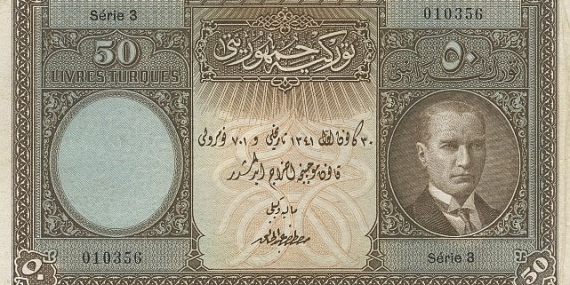 Série 3
010356
50
LIVRES TURQUES
تورکیه جمهوریتی
٥٠
تورك لیراسی
٣٠ کانون اول ١٣٤١ تاریخلی و ٧٠١ نومرولی
قانون موجبنجه اخراج ایدلمشدر
مالیه وکیلی
010356
Série 3
٥٠
50